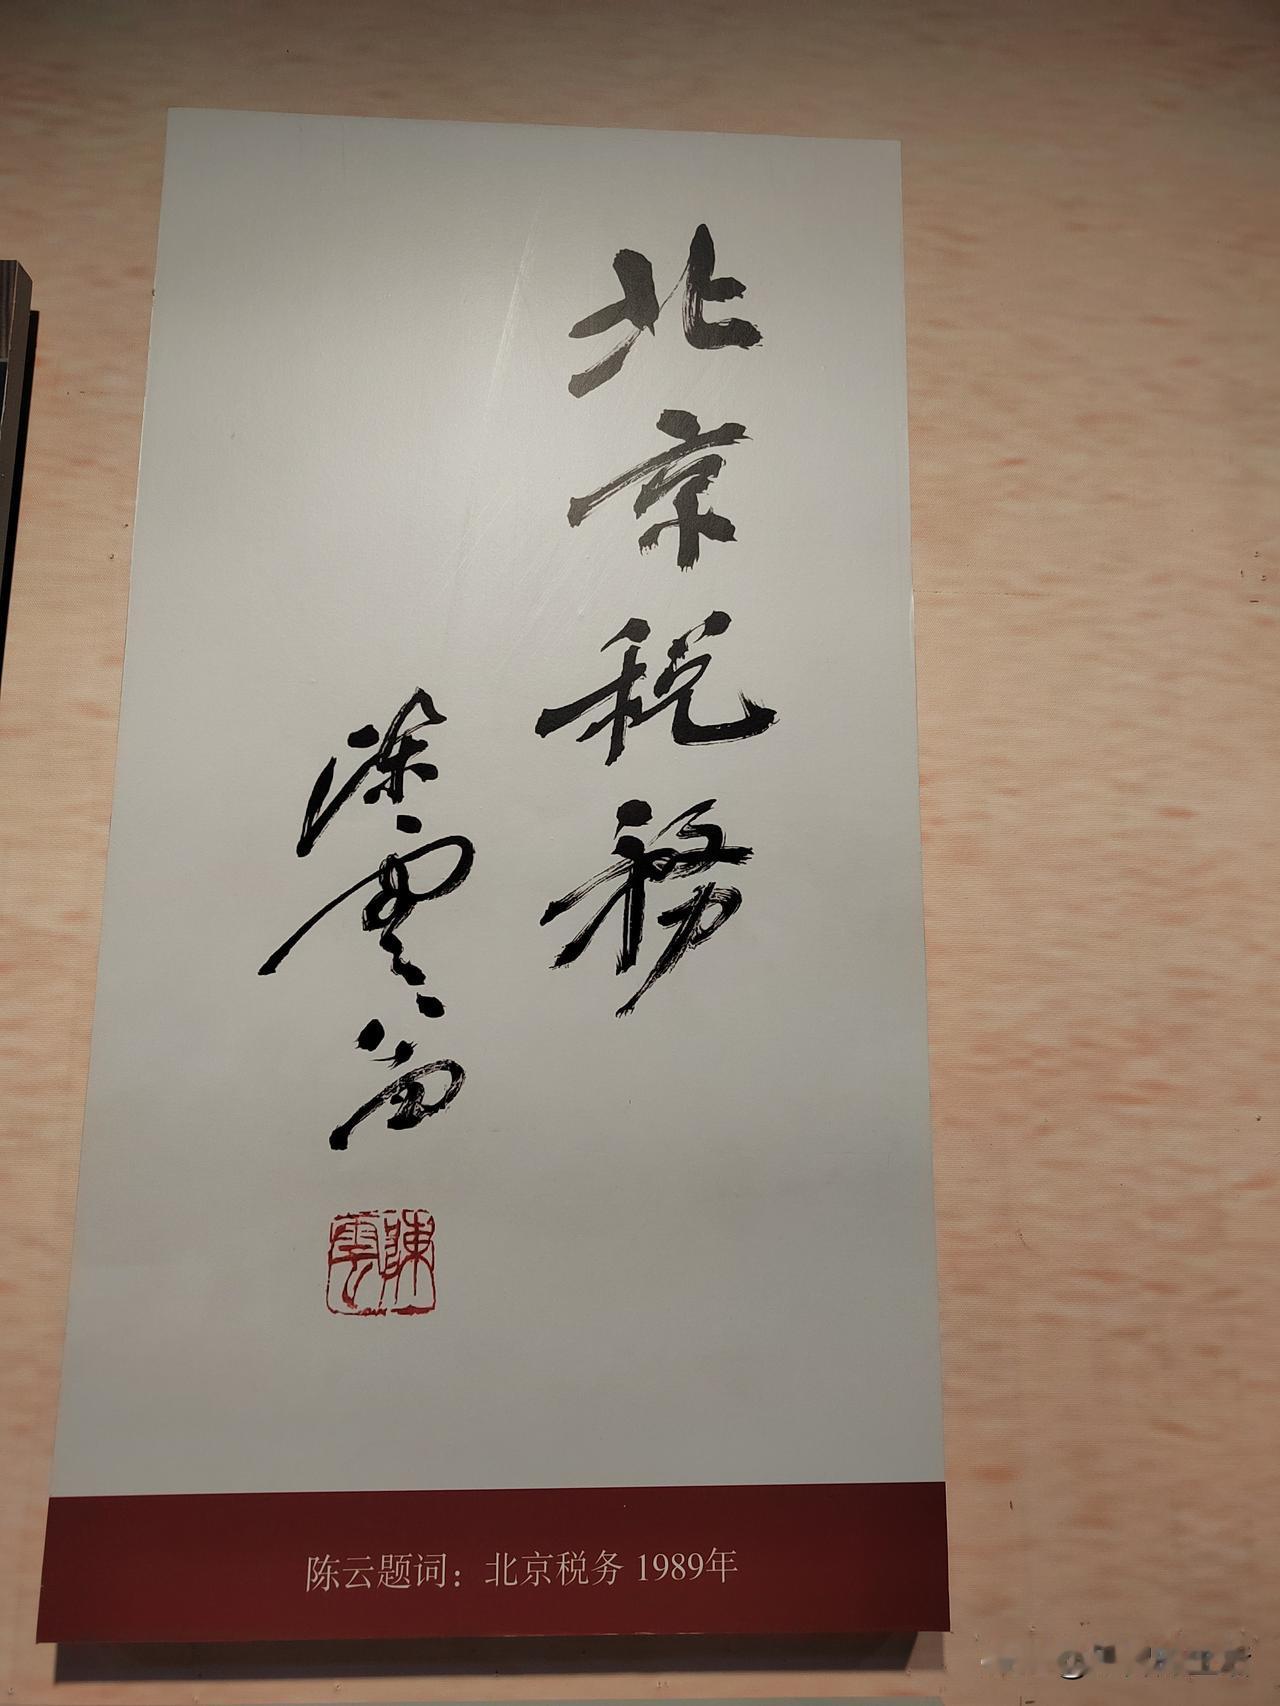 北京税務
陈雲
陳雲
陈云题词：北京税务 1989年